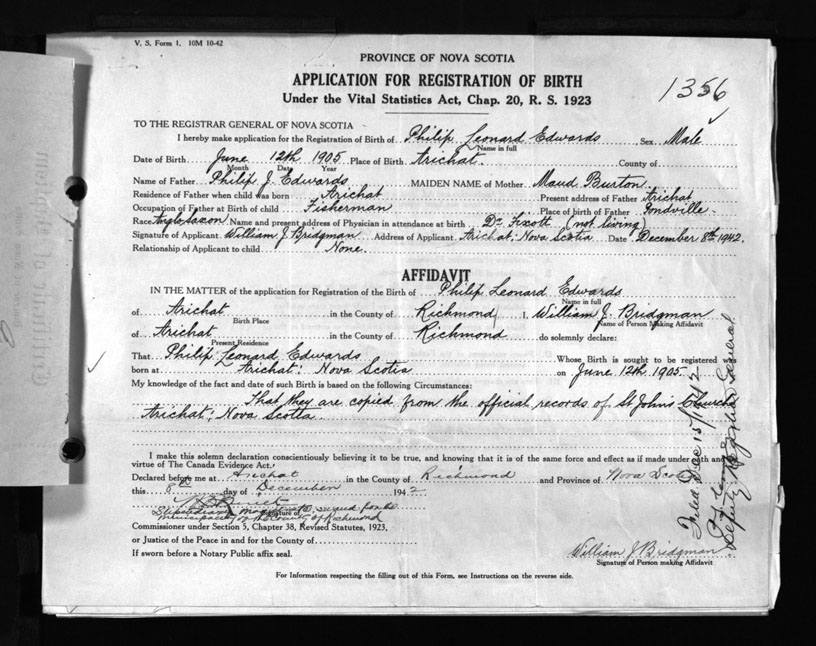 V. S. Form 1. 10M 10-42
PROVINCE OF NOVA SCOTIA
APPLICATION FOR REGISTRATION OF BIRTH
Under the Vital Statistics Act, Chap. 20, R. S. 1923
1356
TO THE REGISTRAR GENERAL OF NOVA SCOTIA
I hereby make application for the Registration of Birth of Philip Leonard Edwards Sex Male
Name in full
Date of Birth June 12th 1905 Place of Birth Arichat. County of
Month Date Year
Name of Father Philip J. Edwards MAIDEN NAME of Mother Maud Burton
Residence of Father when child was born Arichat Present address of Father Arichat
Occupation of Father at Birth of child Fisherman Place of birth of Father Pondville
Race Anglo Saxon Name and present address of Physician in attendance at birth Dr Fixott (not living)
Signature of Applicant William J Bridgman Address of Applicant Arichat, Nova Scotia Date December 8th 1942.
Relationship of Applicant to child None.
AFFIDAVIT
IN THE MATTER of the application for Registration of the Birth of Philip Leonard Edwards
Name in full
of Arichat in the County of Richmond I, William J. Bridgman
Birth Place Name of Person Making Affidavit
of Arichat in the County of Richmond do solemnly declare:
Present Residence
That Philip Leonard Edwards Whose Birth is sought to be registered was
born at Arichat: Nova Scotia on June 12th 1905.
My knowledge of the fact and date of such Birth is based on the following Circumstances:
That they are copied from the official records of St John's Church
Arichat: Nova Scotia.
I make this solemn declaration conscientiously believing it to be true, and knowing that it is of the same force and effect as if made under oath and
virtue of The Canada Evidence Act.
Declared before me at Arichat in the County of Richmond and Province of Nova Scotia
this 8th day of December 1942.
Signature of
Stipendiary Magistrate in and for the
Municipality of the County of Richmond
Commissioner under Section 5, Chapter 38, Revised Statutes, 1923,
or Justice of the Peace in and for the County of
If sworn before a Notary Public affix seal.
William J Bridgman
Signature of Person making Affidavit
For Information respecting the filling out of this Form, see Instructions on the reverse side.
Filed Dec 15/1942
Deputy Registrar General